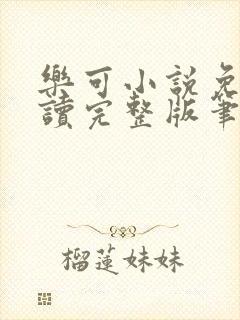 樂可小說免
讀完整版筆
榴蓮妹妹